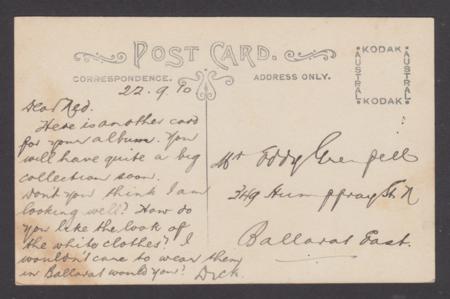 POST CARD.
CORRESPONDENCE.
ADDRESS ONLY.
KODAK
AUSTRAL
AUSTRAL
KODAK
22.9.10
Dear Ned.
Here is another card
for your album. You
will have quite a big
collection soon.
Don't you think I am
looking well? How do
you like the look of
the white clothes? I
wouldn't care to wear them
in Ballarat would you? Dick.
Mr Eddy Grenfell
349 Humffray St N
Ballarat East.